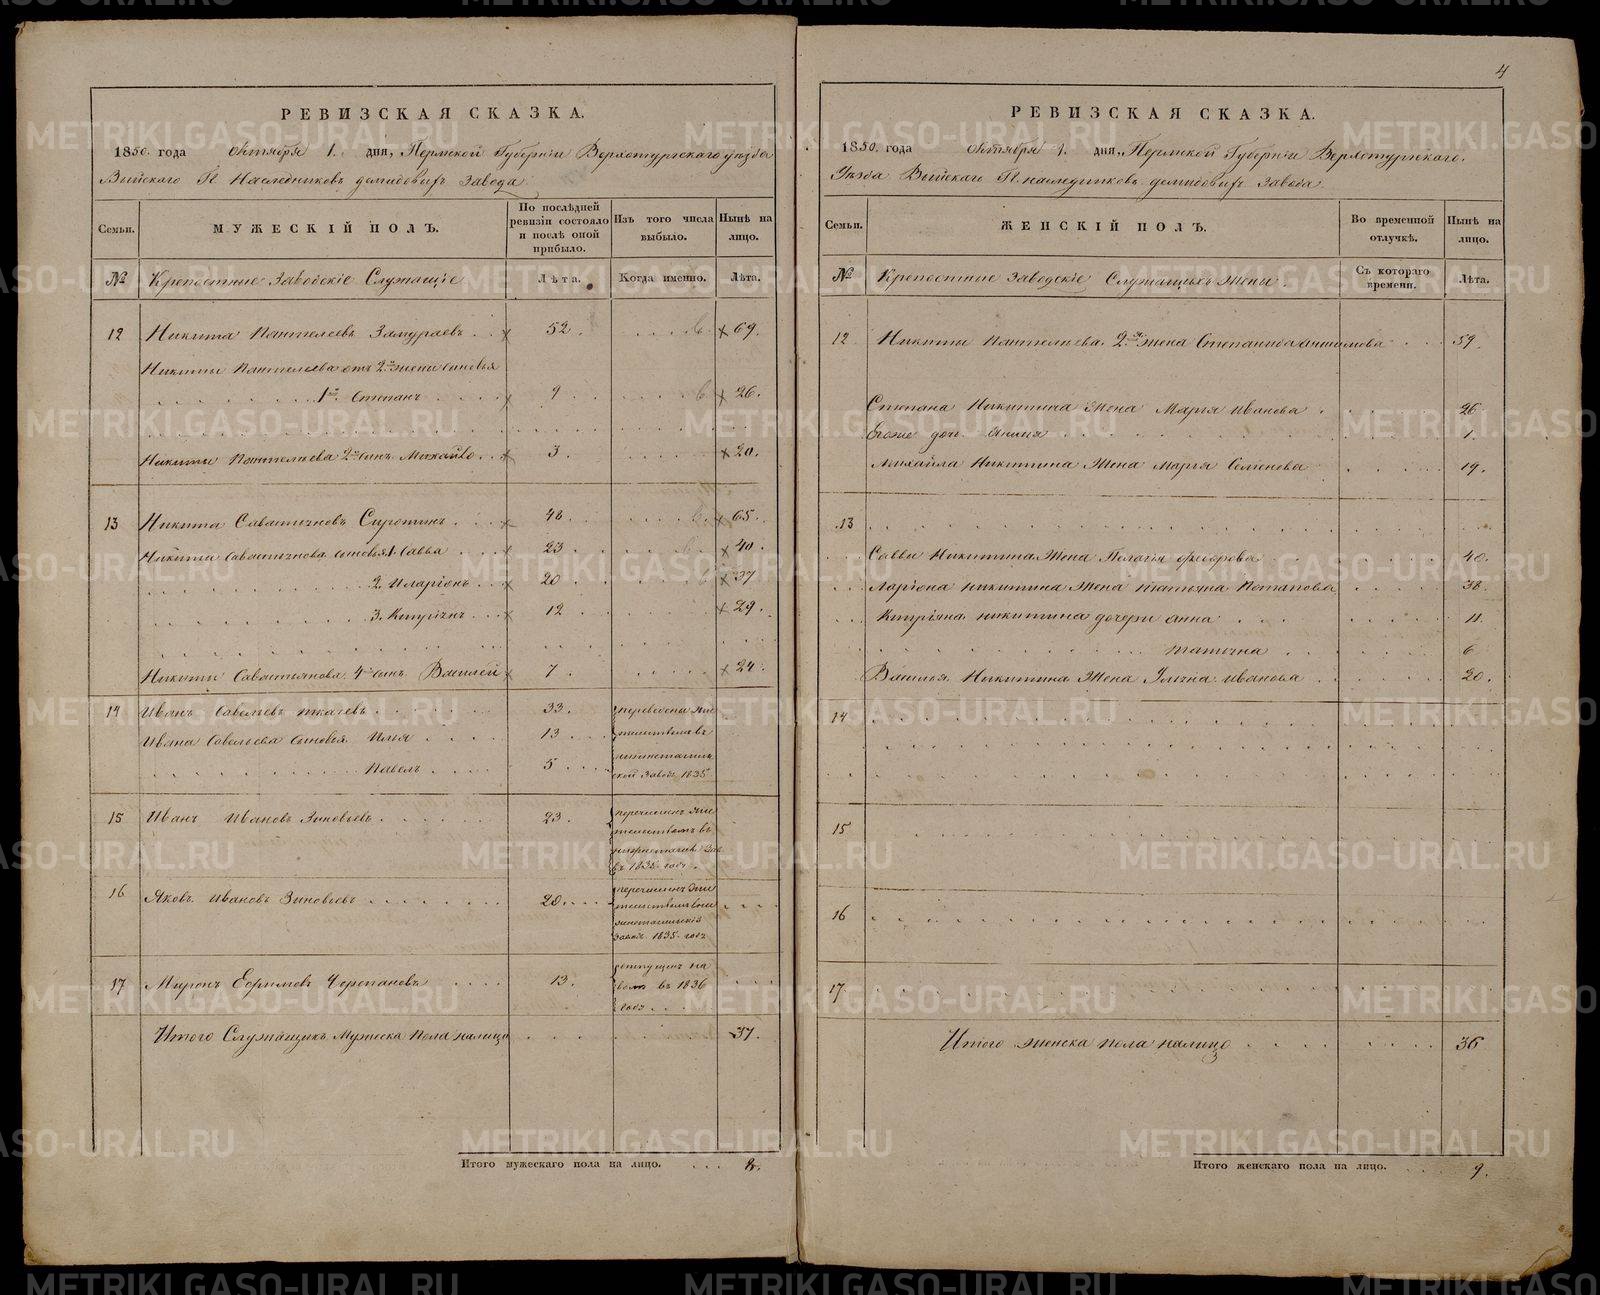 РЕВИЗСКАЯ СКАЗКА.
1850. года октября 1. дня, Пермской Губернiи Верхотурскаго уѣзда
Выйскаго Гг. Наслѣдниковъ демидовыхъ Завода
Семьи.
МУЖЕСКIЙ ПОЛЪ.
По послѣдней ревизiи состояло и послѣ оной прибыло.
Изъ того числа выбыло.
Нынѣ на лицо.
№ Крепостные Заводскiе Служащiе
Лѣта.
Когда именно.
Лѣта.
12 Никита Пантелеевъ Замураевъ 52. 69.
Никиты Пантелеева отъ 2й жены сыновья
1й Степанъ 9 26.
Никиты Пантелѣева 2й сынъ Михайло 3. 20.
13 Никита Савастьяновъ Сиротинъ 48. 65.
Никиты Савастьянова сыновья 1. Савва 23 40.
2. Иларiонъ 20 37
3. Кипрiянъ 12 29.
Никиты Савастьянова 4й сынъ Василей 7. 24.
14 Иванъ Савельевъ ткачевъ 33. переведены жи
Ивана Савельева сыновья Илья 13 тельствомъ въ
Павелъ 5 нижнетагиль
ской Завод. 1835
15 Иванъ Ивановъ Зиновьевъ 23. перечисленъ жи
тельствомъ въ
нижнетагил. Зав.
въ 1835. годѣ
16 Яковъ Ивановъ Зиновьевъ 28. перечисленъ жи
тельствомъ въ ни
жнетагильскiй
Заводъ 1835. годѣ
17 Миронъ Ефимовъ Черепановъ 13. отпущенъ на
волю въ 1836
годѣ
Итого Служащихъ Мужеска пола налицо 37.
Итого мужескаго пола на лицо. 8.
4
РЕВИЗСКАЯ СКАЗКА.
1850. года октября 1. дня, Пермской Губернiи Верхотурскаго.
Уѣзда Выйскаго Гг. наслѣдниковъ демидовыхъ Завода.
Семьи.
ЖЕНСКIЙ ПОЛЪ.
Во временной отлучкѣ.
Нынѣ на лицо.
№ Крепостные Заводскiе Служащихъ Жены.
Съ котораго времени.
Лѣта.
12 Никиты Пантелѣева 2я жена Степанида анисимова 59.
Степана Никитина Жена Марья Иванова 26
Егоже дочь 1.
Михайла Никитина Жена Марья Семенова 19.
13
Саввы Никитина Жена Пелагiя федорова 40.
Ларiона никитина Жена татьяна Потапова 38.
Кипрiяна никитина дочери анна 11.
татьяна 6
Василья Никитина Жена Ульяна Иванова 20.
14
15
16
17
Итого женска пола налицо 36
Итого женскаго пола на лицо. 9.
METRIKI.GASO-URAL.RU